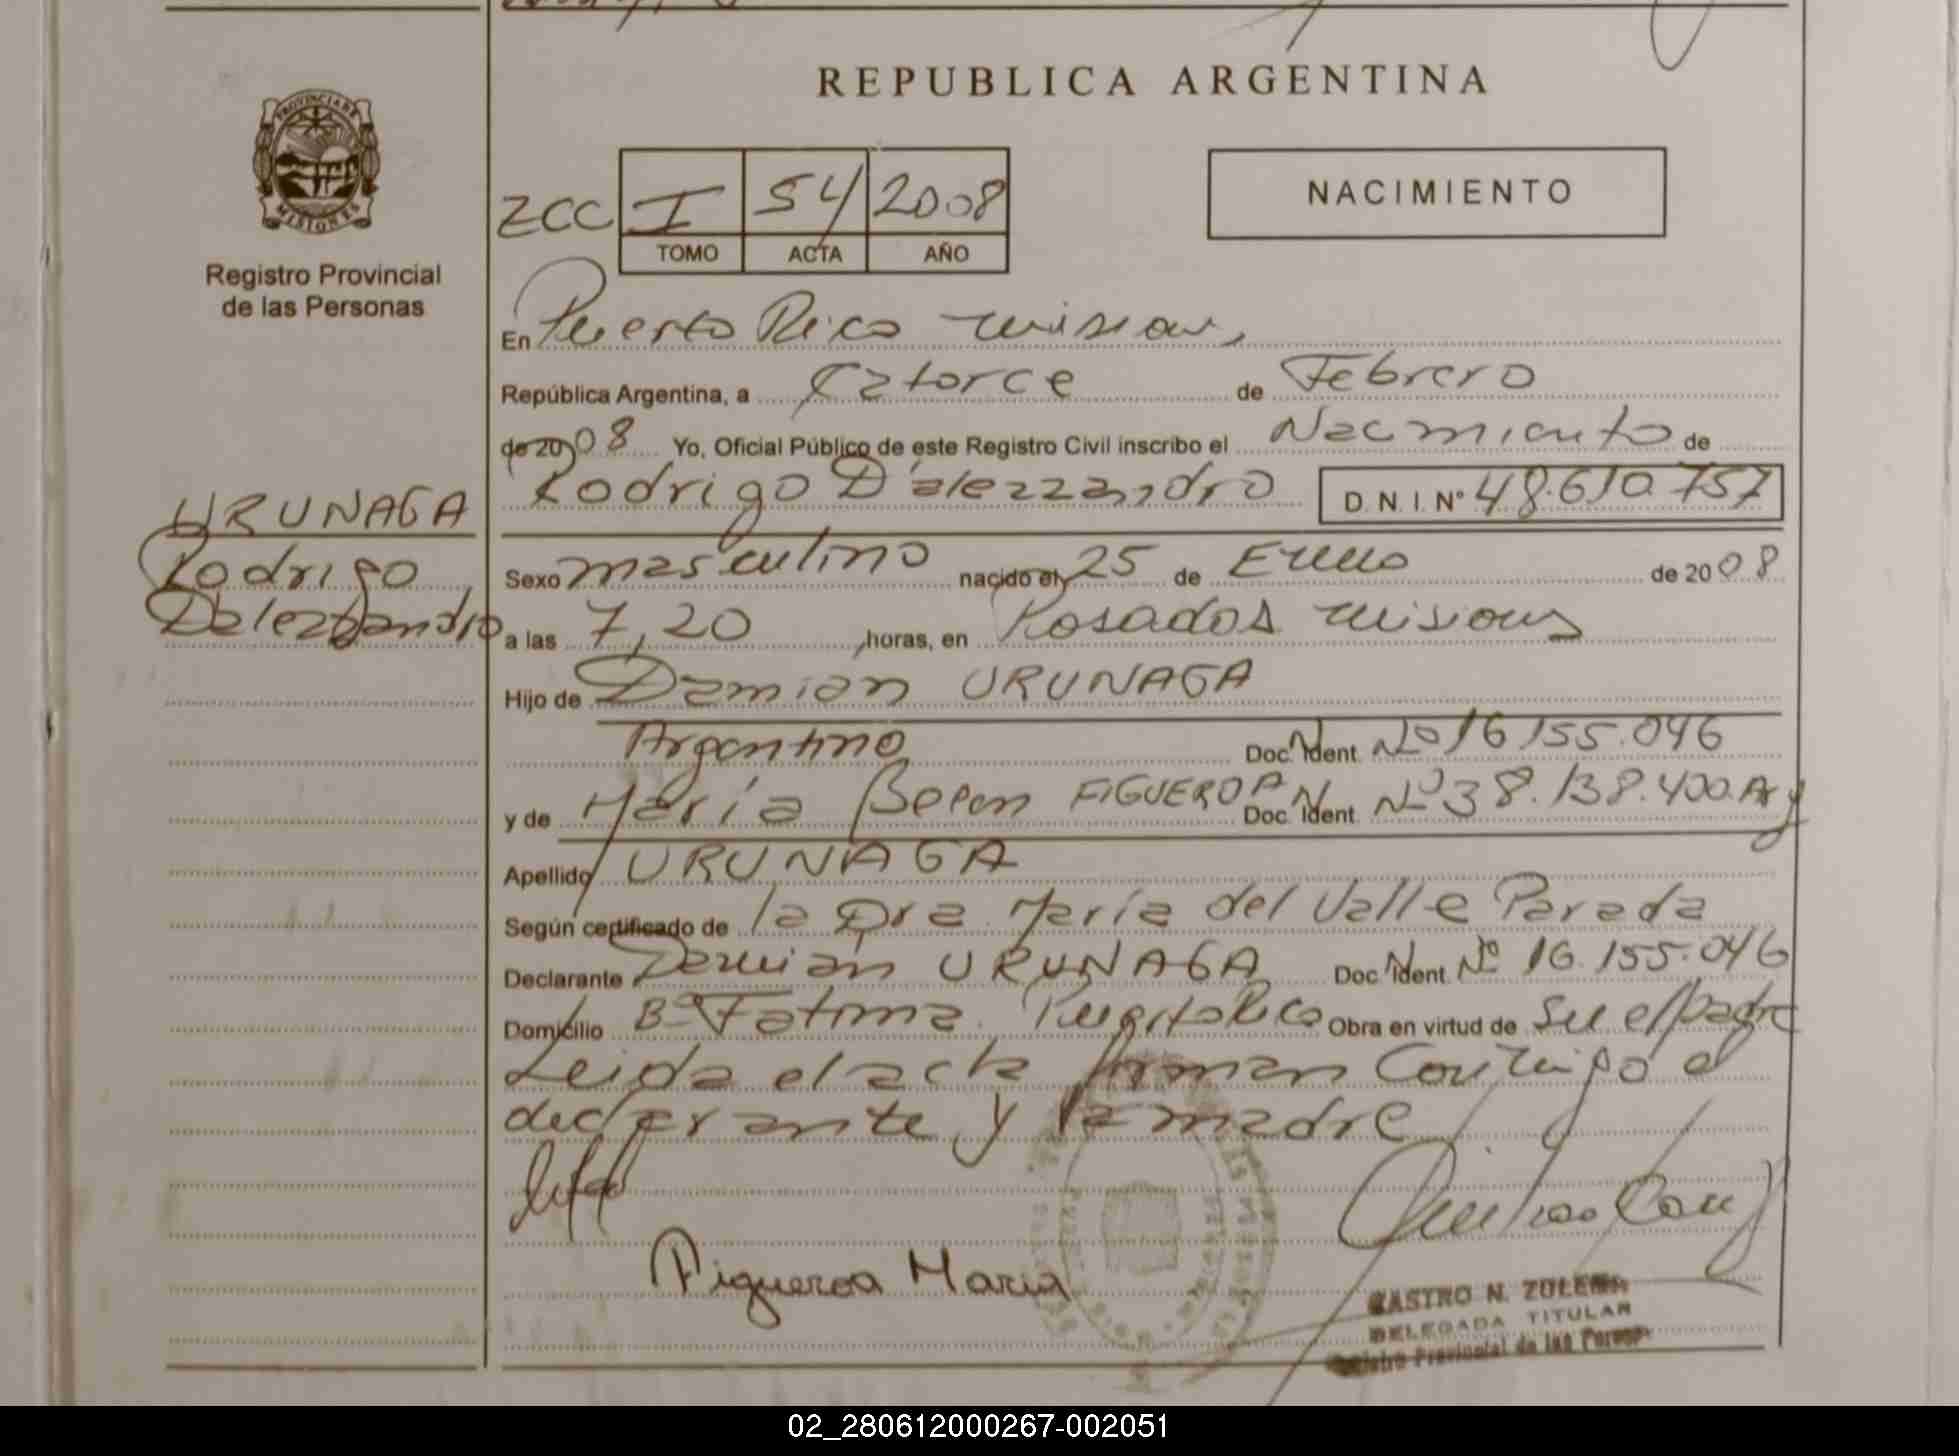 REPUBLICA ARGENTINA
PROVINCIA DE
MISIONES
Registro Provincial
de las Personas
ZCC I 54 2008
TOMO ACTA AÑO
NACIMIENTO
En Puerto Rico Misiones,
República Argentina, a Catorce de Febrero
de 2008 Yo, Oficial Público de este Registro Civil inscribo el Nacimiento de
Rodrigo D'alezzandro D. N. I. N° 48.610.757
URUNAGA
Rodrigo
Dalezzandro
Sexo masculino nacido el 25 de Enero de 2008
a las 7,20 horas, en Posadas Misiones
Hijo de Damián URUNAGA
Argentino Doc. N. Ident. N° 16.155.046
y de María Belen FIGUEROA Doc. N. Ident. N° 38.138.400. Arg
Apellido URUNAGA
Según certificado de la Dra María del Valle Parada
Declarante Damián URUNAGA Doc. N. Ident. N° 16.155.046
Domicilio B° Fatima. Puerto Rico Obra en virtud de ser el padre
Leida el acta firman Conmigo el
declarante y la madre
Figueroa Maria
CASTRO N. ZULEMA
DELEGADA TITULAR
Registro Provincial de las Personas
02_280612000267-002051